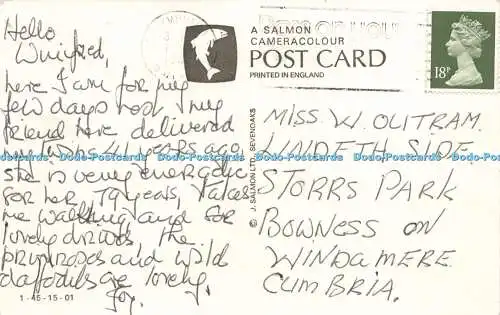 Hello
Winifred,
here I am for my
few days rest, my
friend here delivered
my twins 41 years ago,
she is very energetic
for her 79 years, takes
me walking and for
lovely drives, the
primroses and wild
daffodils are lovely.
Joy.
1-45-15-01
A SALMON
CAMERACOLOUR
POST CARD
PRINTED IN ENGLAND
© J. SALMON LTD., SEVENOAKS
18P
MISS. W. OUTRAM.
LINDETH SIDE
STORRS PARK
BOWNESS ON
WINDAMERE.
CUMBRIA.
Dodo-Postcards Dodo-Postcards Dodo-Postcards Dodo-Postcards Dodo-Postcards